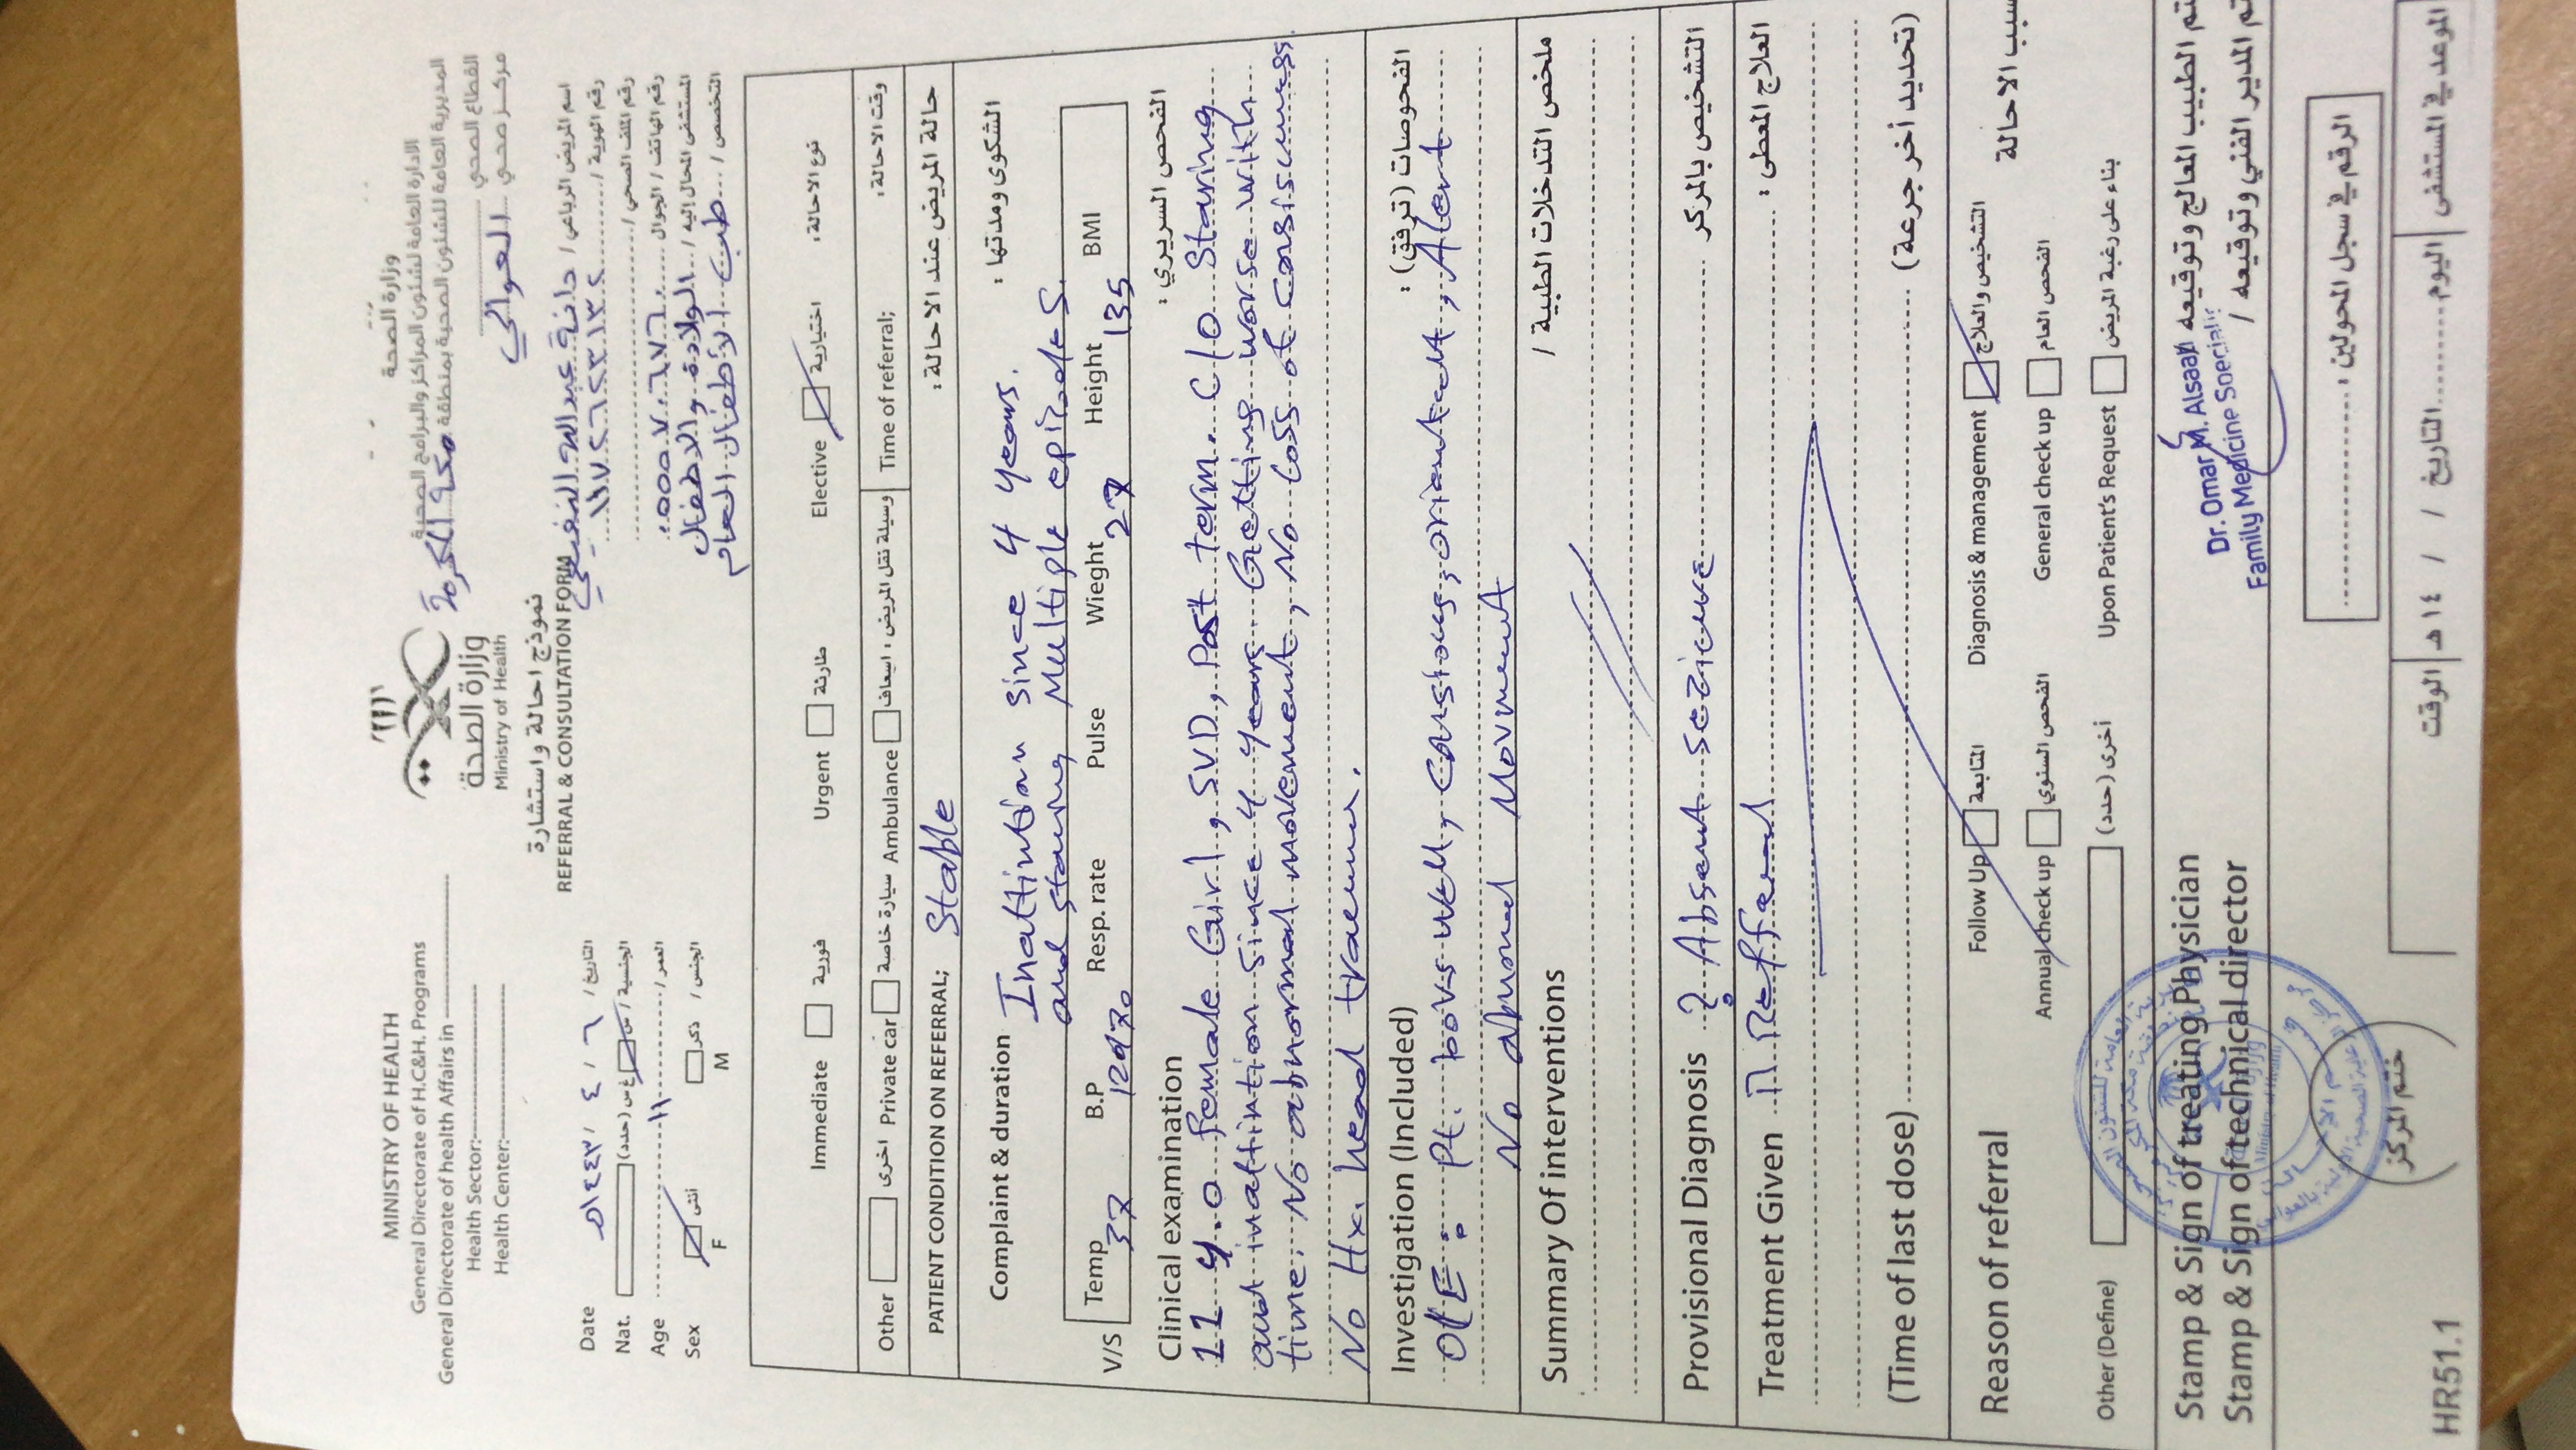 MINISTRY OF HEALTH
General Directorate of H.C&H. Programs
General Directorate of health Affairs in
Health Sector:
Health Center:
وزارة الصحة
Ministry of Health
وزارة الصحة
الادارة العامة لشئون المراكز والبرامج الصحية
المديرية العامة للشئون الصحية بمنطقة مكة المكرمة
القطاع الصحي
مركز صحي العوالي
نموذج احالة واستشارة
REFERRAL & CONSULTATION FORM
اسم المريض الرباعي / دانة عبدالله النفيعي
رقم الهوية / ١١٧٢٦٢٣١٣٢
رقم الملف الصحي /
رقم الهاتف / الجوال ٠٥٥٥٧٠٦٧٦٠
المستشفى المحال إليه / الولادة والاطفال
التخصص / طب الأطفال العام
Date ٦ / ٤ / ١٤٤٣هـ التاريخ /
Nat. الجنسية / س غ س (حدد)
Age ١١ العمر /
Sex أنثى ذكر الجنس /
F M
Immediate فورية Urgent طارئة Elective اختيارية نوع الاحالة:
Other اخرى Private car سيارة خاصة Ambulance وسيلة نقل المريض : اسعاف Time of referral; وقت الاحالة:
PATIENT CONDITION ON REFERRAL; Stable حالة المريض عند الاحالة :
Complaint & duration Inattintion since 4 years. الشكوى ومدتها :
and staring Multiple episodes.
V/S Temp 37 B.P 120/70 Resp. rate Pulse Wieght 27 Height 135 BMI
Clinical examination الفحص السريري :
11 y.o female Girl, SVD, Post term. C/O Staring
and inattintion since 4 years. Getting worse with
time. No abnormal movement, No loss of
No Hx. head trauma.
Investigation (Included) الفحوصات (ترفق) :
O/E : Pt. looks well, , , Alert
No Movment
Summary Of interventions ملخص التدخلات الطبية /
Provisional Diagnosis ? Absent التشخيص بالمركز
Treatment Given العلاج المعطى :
(Time of last dose) (تحديد أخر جرعة)
Reason of referral Follow Up المتابعة Diagnosis & management التشخيص والعلاج سبب الاحالة
Annual check up الفحص السنوي General check up الفحص العام
Other (Define) أخرى (حدد) Upon Patient's Request بناء على رغبة المريض
Stamp & Sign of treating Physician تم الطبيب المعالج وتوقيعه
Stamp & Sign of technical director تم المدير الفني وتوقيعه /
Dr. Omar M. Alsaari
Family Medicine Specialis
الرقم في سجل المحولين :
ختم المركز
الموعد في المستشفى اليوم التاريخ / / ١٤ هـ الوقت
HR51.1